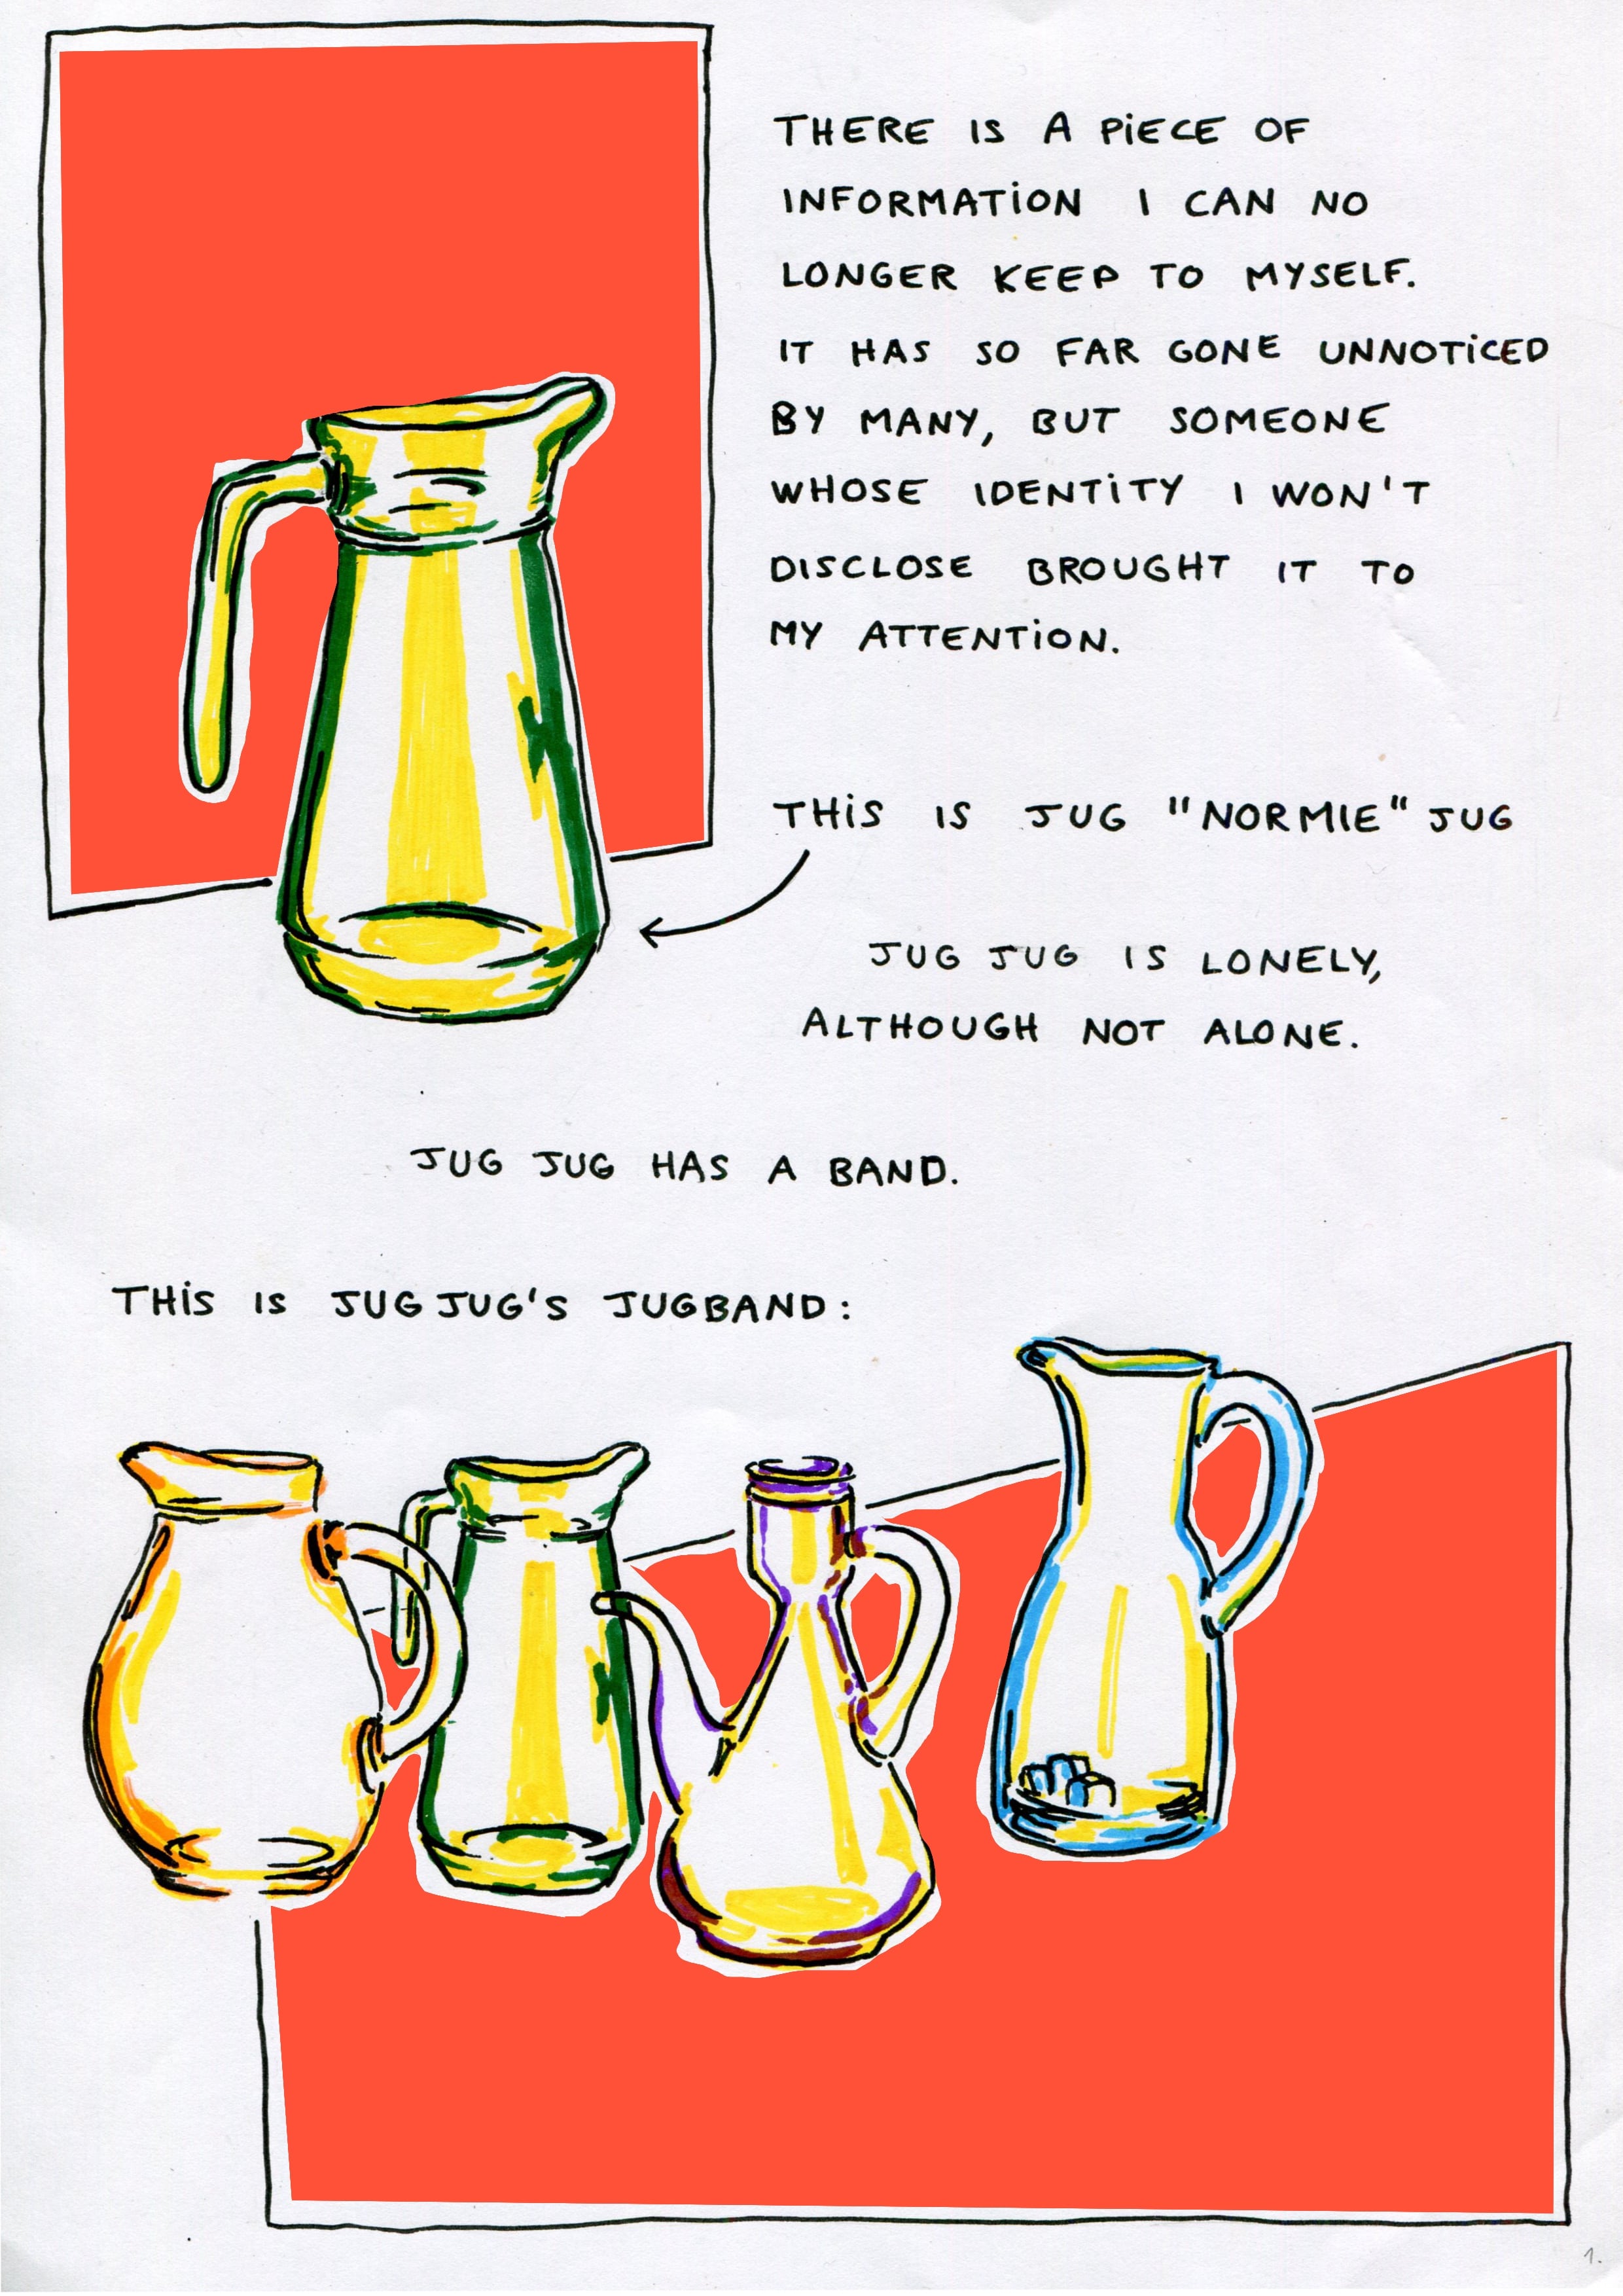 THERE IS A PIECE OF
INFORMATION I CAN NO
LONGER KEEP TO MYSELF.
IT HAS SO FAR GONE UNNOTICED
BY MANY, BUT SOMEONE
WHOSE IDENTITY I WON'T
DISCLOSE BROUGHT IT TO
MY ATTENTION.
THIS IS JUG "NORMIE" JUG
JUG JUG IS LONELY,
ALTHOUGH NOT ALONE.
JUG JUG HAS A BAND.
THIS IS JUG JUG'S JUGBAND:
1.